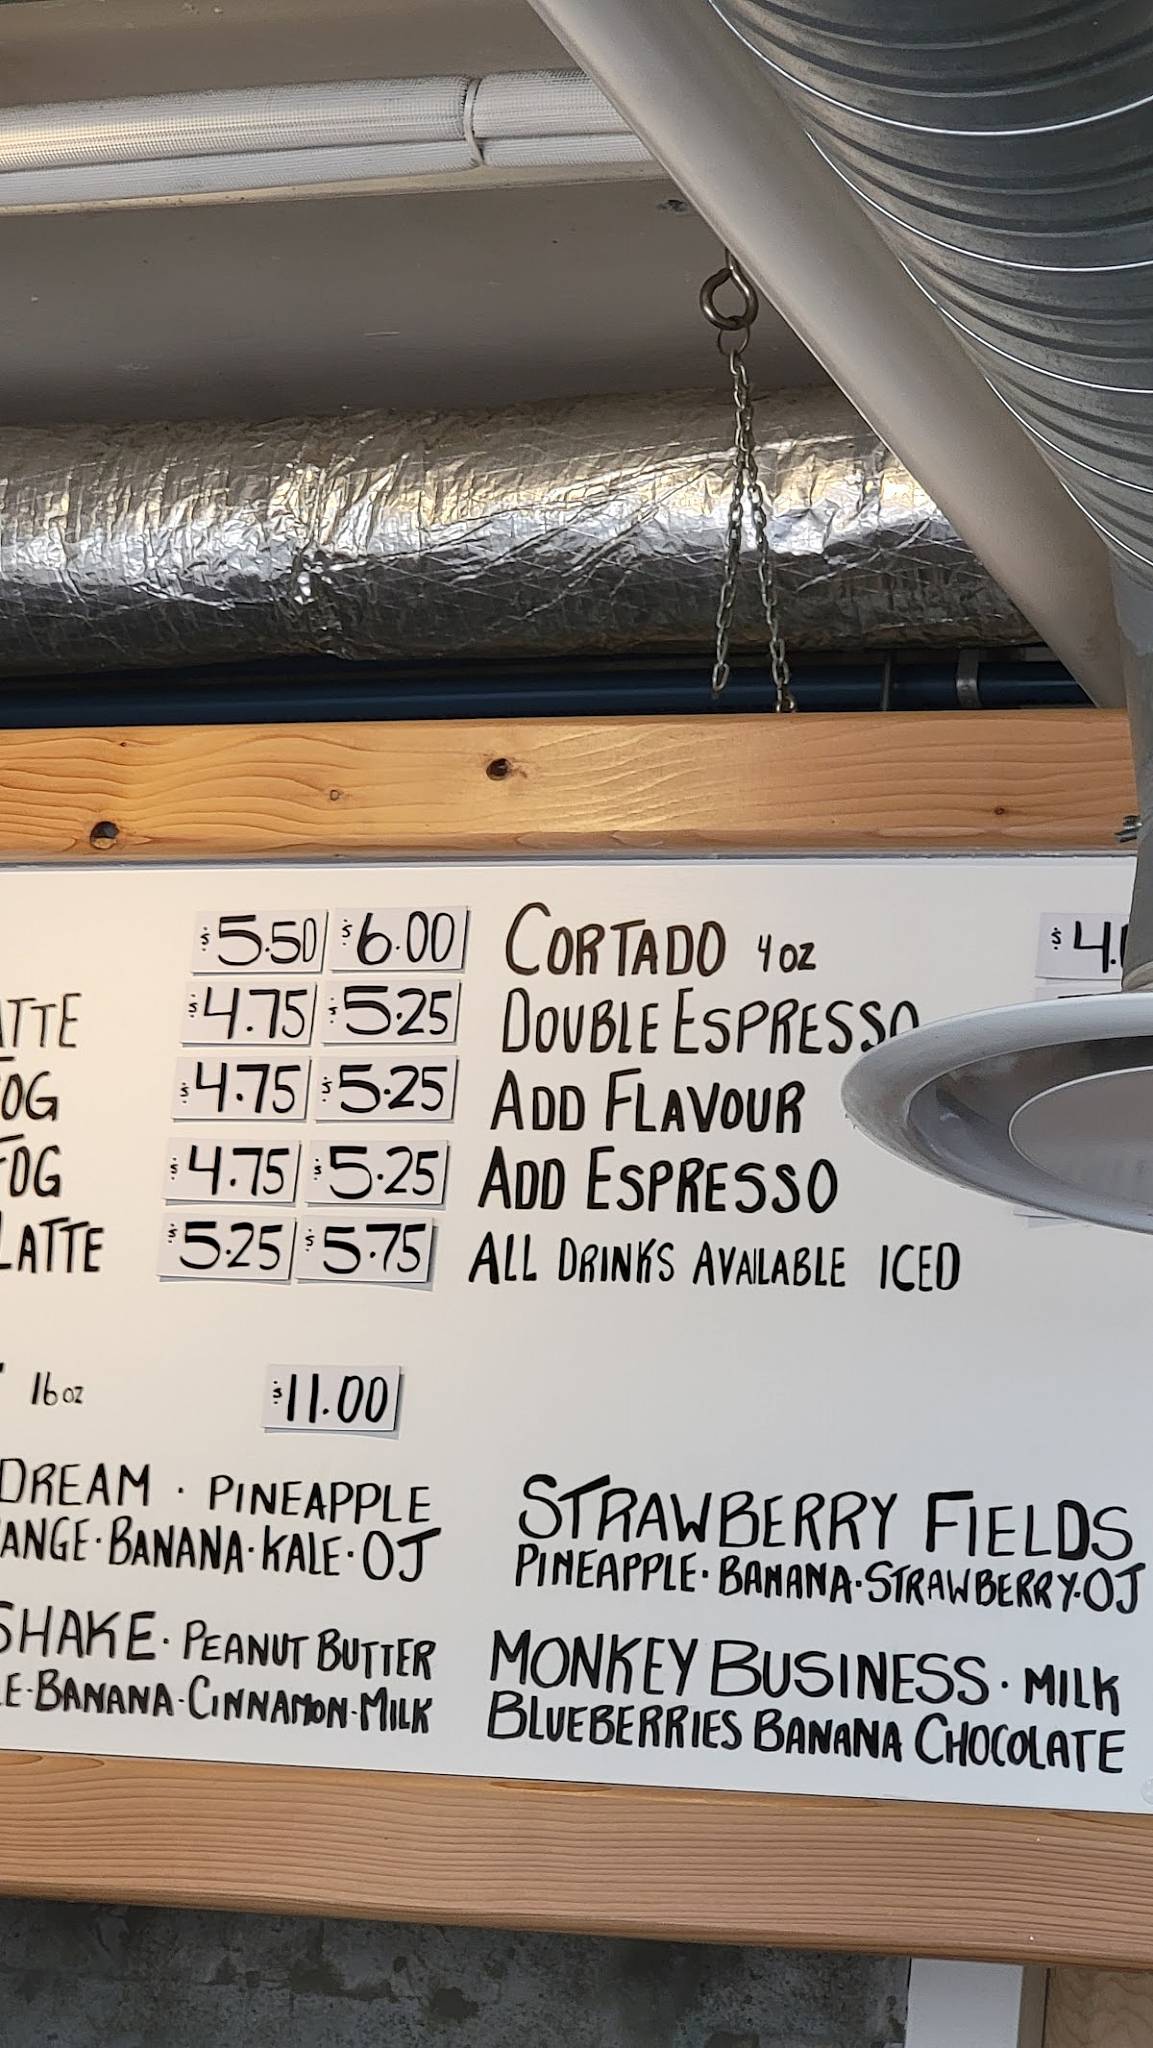 $5.50 $6.00 CORTADO 4oz
$4.75 $5.25 DOUBLE ESPRESSO
$4.75 $5.25 ADD FLAVOUR
$4.75 $5.25 ADD ESPRESSO
LATTE $5.25 $5.75 ALL DRINKS AVAILABLE ICED
16oz $11.00
DREAM · PINEAPPLE
BANANA · KALE · OJ
SHAKE · PEANUT BUTTER
BANANA · CINNAMON · MILK
STRAWBERRY FIELDS
PINEAPPLE · BANANA · STRAWBERRY · OJ
MONKEY BUSINESS · MILK
BLUEBERRIES BANANA CHOCOLATE